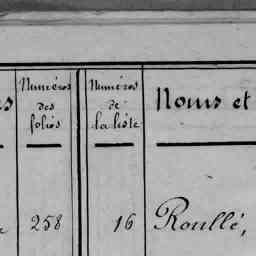 Numéros Numéros Noms et
des de
folios la liste
258 16 Roullé,